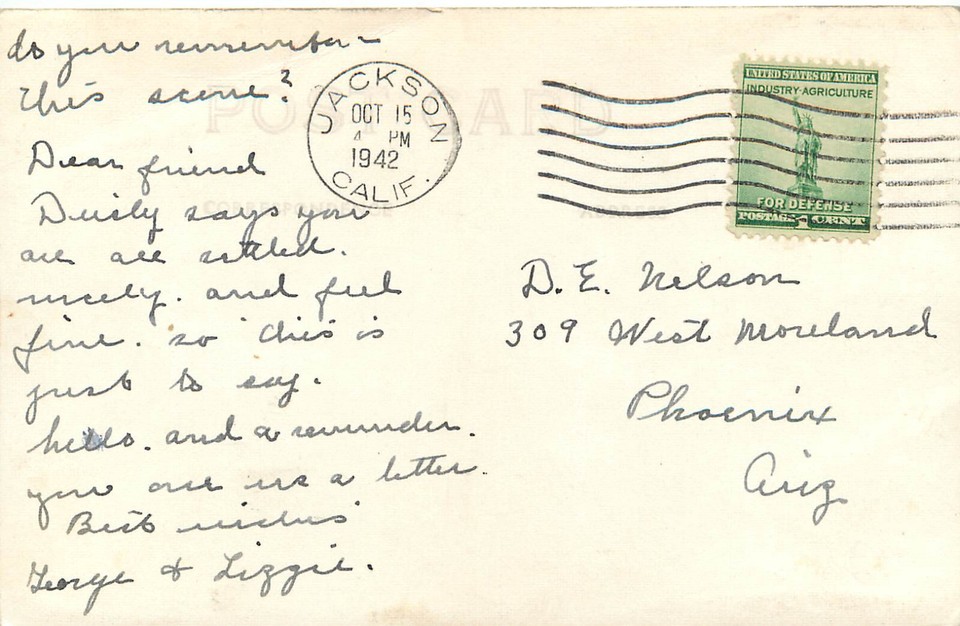 do you remember -
this scene?
Dear friend
Dusty says you
are all settled.
nicely. and feel
fine. so this is
just to say.
hello. and a reminder.
you owe us a letter.
Best wishes
George & Lizzie.
POST CARD
CORRESPONDENCE
ADDRESS
JACKSON
OCT 15
4 PM
1942
CALIF.
UNITED STATES OF AMERICA
INDUSTRY·AGRICULTURE
FOR DEFENSE
POSTAGE 1 CENT
D. E. Nelson
309 West Moreland
Phoenix
Ariz